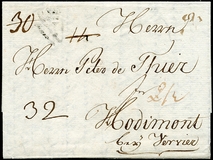 30 Herrn
Herrn Peter de Thier
32
Hodimont
bey Vervier